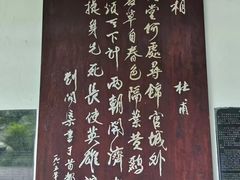 相
杜甫
堂何處尋錦官城外
草自春色隔葉黃鸝
天下計兩朝開濟
捷身先死長使英雄
劉開渠書于首都